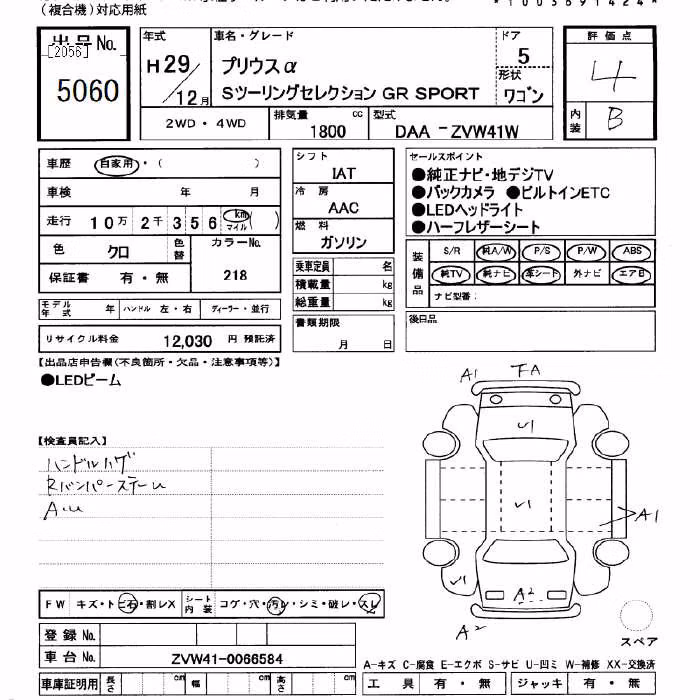 (複合機)対応用紙
*1003691424*
出品No.
[2056]
5060
年式
H29/12月
車名・グレード
プリウスα
Sツーリングセレクション GR SPORT
ドア
5
形状
ワゴン
評価点
4
内装
B
2WD・4WD
排気量
1800
cc
型式
DAA -ZVW41W
車歴
自家用・( )
車検 年 月
走行 10万2千356 km マイル ( )
色
クロ
色替
カラーNo.
218
保証書 有・無
モデル年式 年
ハンドル 左・右
ディーラー・並行
リサイクル料金 12,030 円 預託済
シフト
IAT
冷房
AAC
燃料
ガソリン
乗車定員 名
積載量 kg
総重量 kg
書類期限
月 日
セールスポイント
●純正ナビ・地デジTV
●バックカメラ ●ビルトインETC
●LEDヘッドライト
●ハーフレザーシート
装備品
S/R 純A/W P/S P/W ABS
純TV 純ナビ 革シート 外ナビ エアB
ナビ型番:
後日品
【出品店申告欄(不良箇所・欠品・注意事項等)】
●LEDビーム
【検査員記入】
ハンドルハゲ
RバンパーステーU
A.U
A1
FA
U1
U1
A1
U1
A2
A2
スペア
FW キズ・トビ石・割レX
シート内装 コゲ・穴・汚レ・シミ・破レ・スレ
登録No.
車台No. ZVW41-0066584
車庫証明用 長さ cm 幅 cm 高さ cm
A-キズ C-腐食 E-エクボ S-サビ U-凹ミ W-補修 XX-交換済
工具 有・無 ジャッキ 有・無